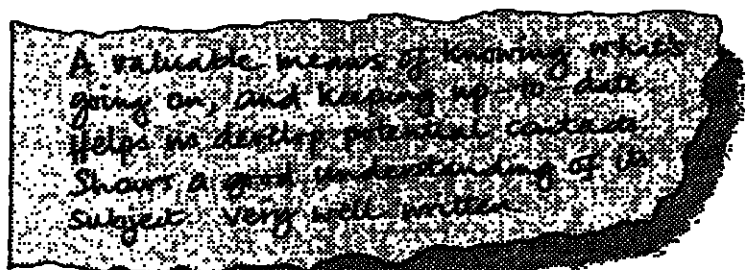 A valuable means of knowing what's
going on, and keeping up-to-date
Helps us develop potential contacts
Shows a good understanding of its
subject. Very well written